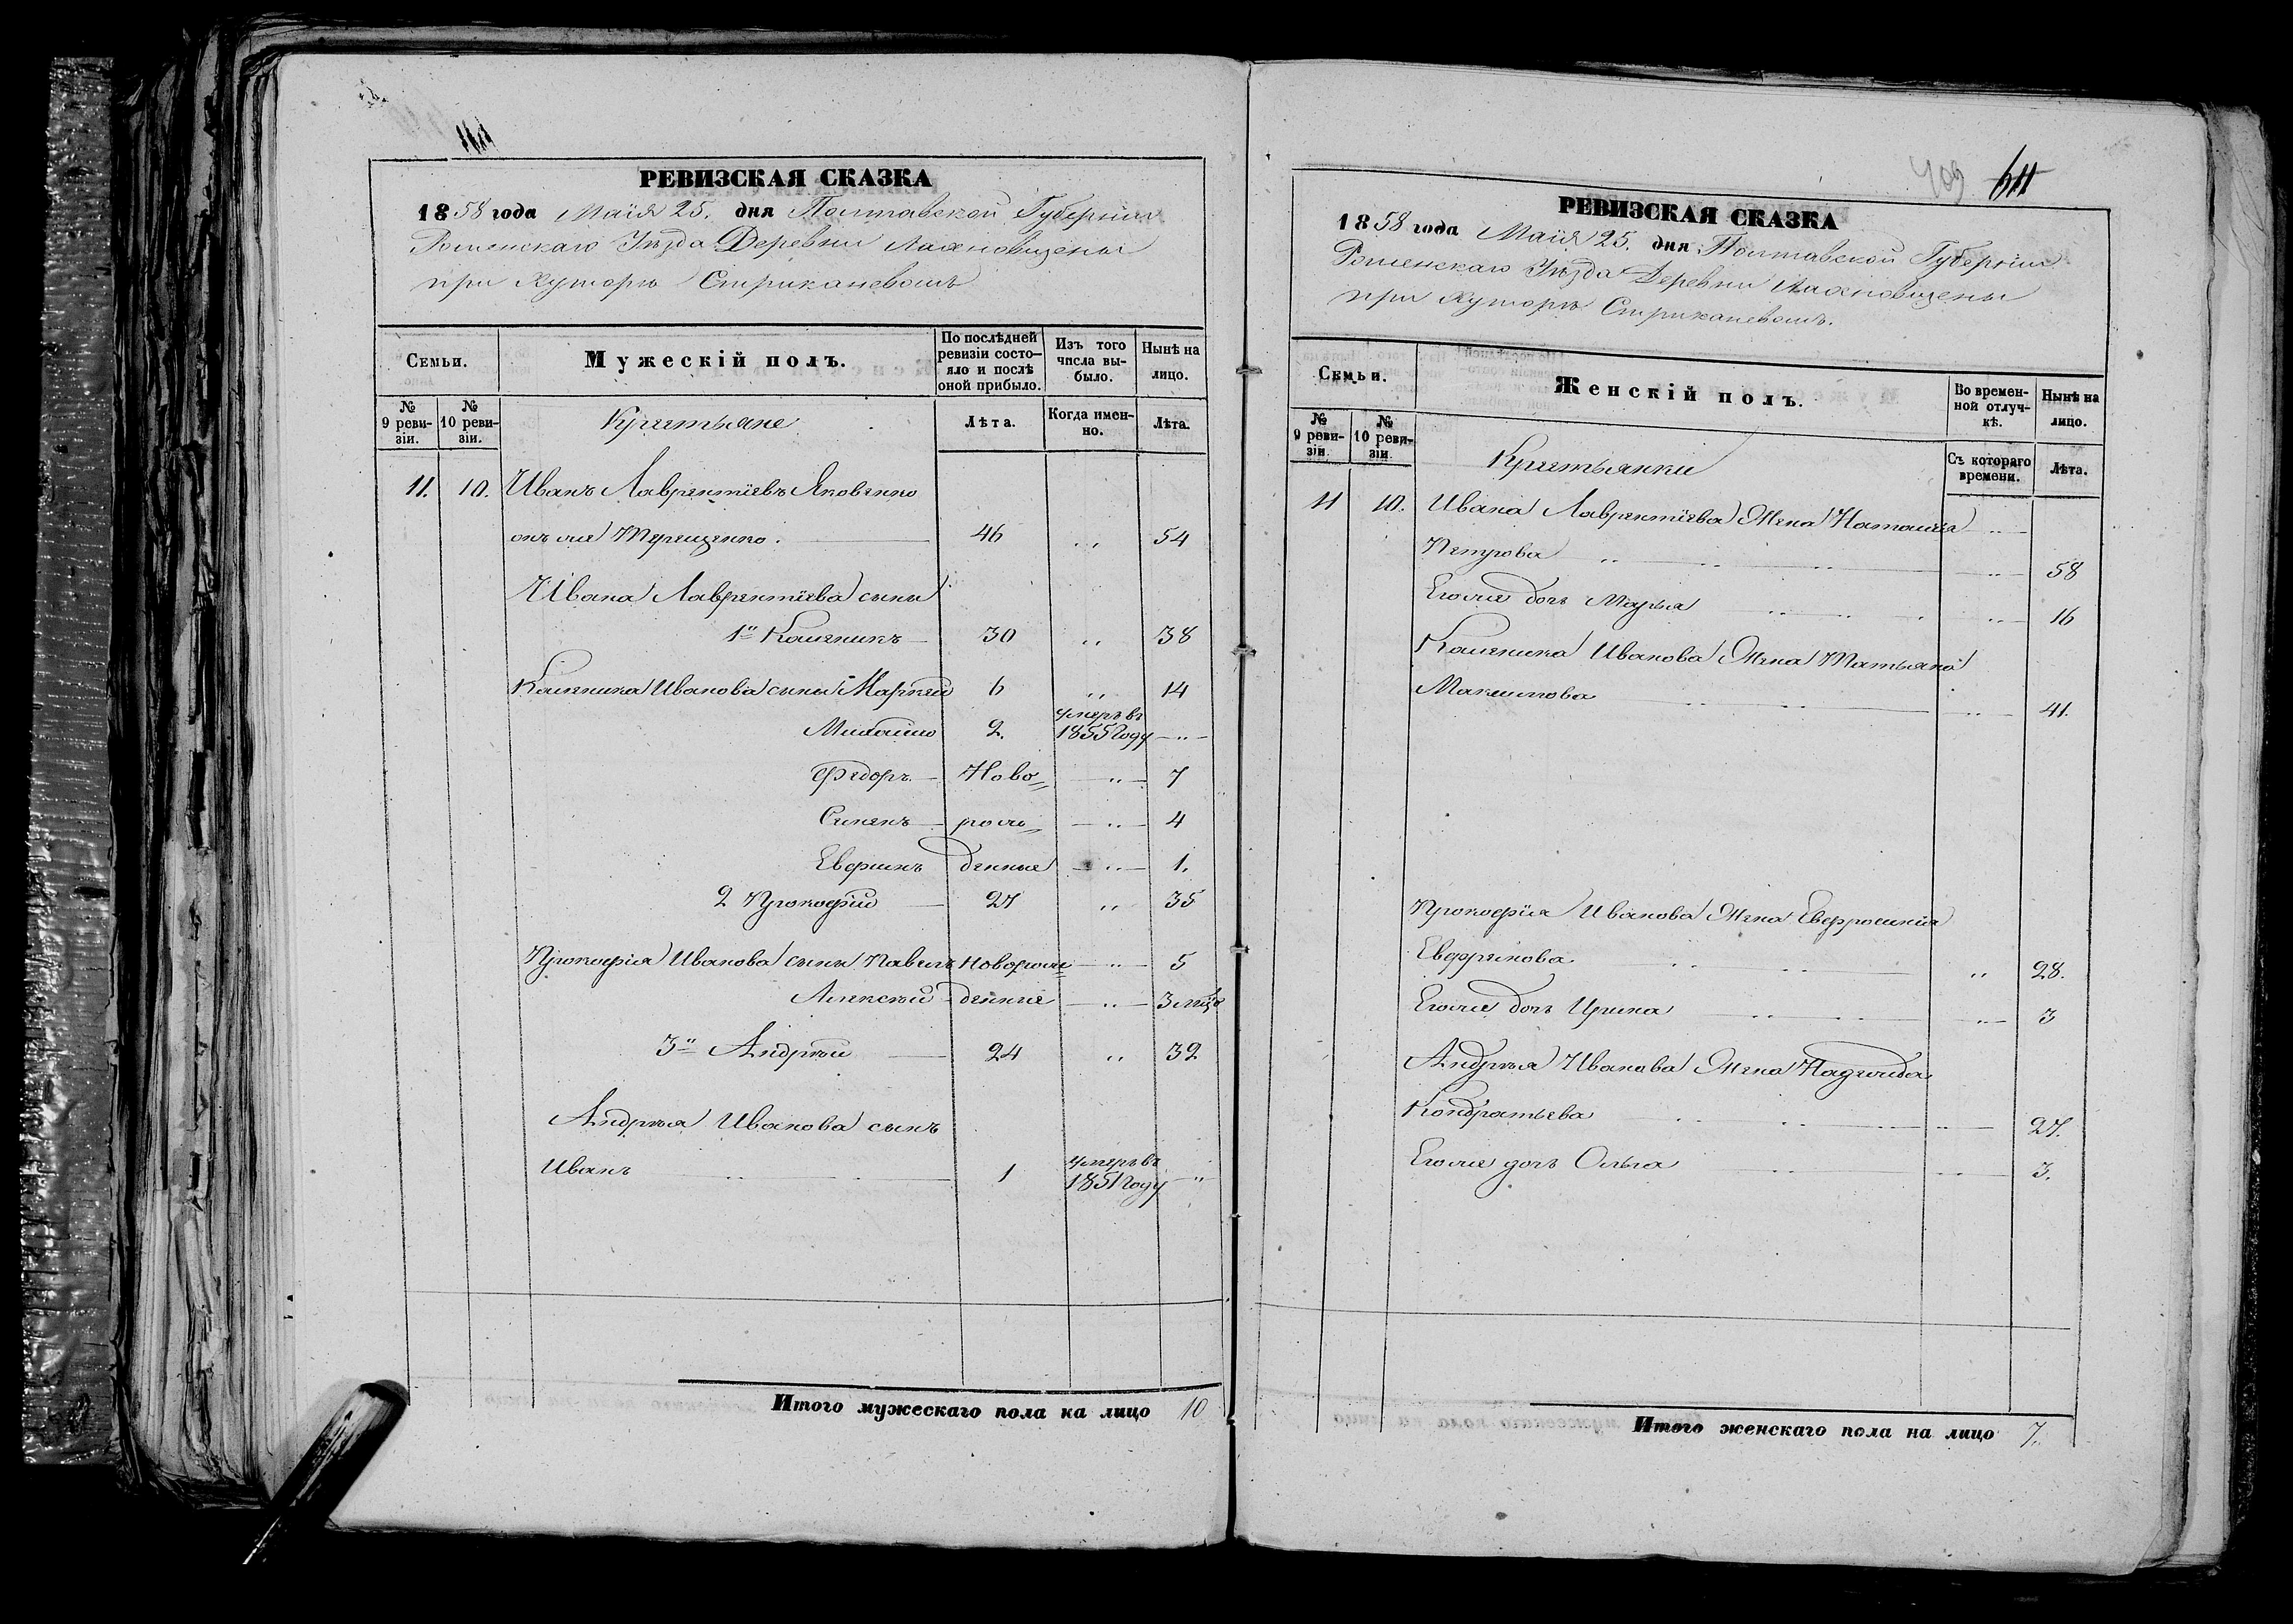 РЕВИЗСКАЯ СКАЗКА
1858 года Маія 25. дня Полтавской Губерніи
Роменскаго Уѣзда Деревни Лахновщены
при Хуторѣ Стрикачевомъ
Семьи.
Мужескій полъ.
По послѣдней ревизіи состояло и послѣ оной прибыло.
Изъ того числа выбыло.
Нынѣ на лицо.
№ 9 ревизіи.
№ 10 ревизіи.
Крестьяне
Лѣта.
Когда именно.
Лѣта.
11. 10. Иванъ Лаврентіевъ Яковенко
онъ же Терещенко. 46 " 54
Ивана Лаврентіева сыны
1й Каленикъ 30 " 38
Каленика Иванова сыны Маркей 6 " 14
Михайло 2. умеръ въ 1855 Году "
Федоръ Ново= " 7
Семенъ рож= " 4
Евфимъ денные " 1.
2 Прокофій 27 " 35
Прокофія Иванова сыны Павелъ Новорож= " 5
Алексѣй денные " 3 мѣся
3й Андрѣй 24 " 32
Андрѣя Иванова сынъ
Иванъ 1 умеръ въ 1851 Году "
Итого мужескаго пола на лицо 10
409 611
РЕВИЗСКАЯ СКАЗКА
1858 года Маія 25. дня Полтавской Губерніи
Роменскаго Уѣзда Деревни Лахновщены
при Хуторѣ Стрикачевомъ.
Семьи.
Женскій полъ.
Во временной отлучкѣ.
Нынѣ на лицо.
№ 9 ревизіи.
№ 10 ревизіи.
Крестьянки
Съ котораго времени.
Лѣта.
11 10. Ивана Лаврентіева Жена Наталія
Петрова " 58
Егоже дочь Марья " 16
Каленика Иванова Жена Татьяна
Максимова " 41.
Прокофія Иванова Жена Евфросинія
Евфимова " 28.
Егоже дочь Ирина " 3
Андрѣя Иванова Жена Надежда
Кондратьева " 27.
Егоже дочь Ольга " 3.
Итого женскаго пола на лицо 7.